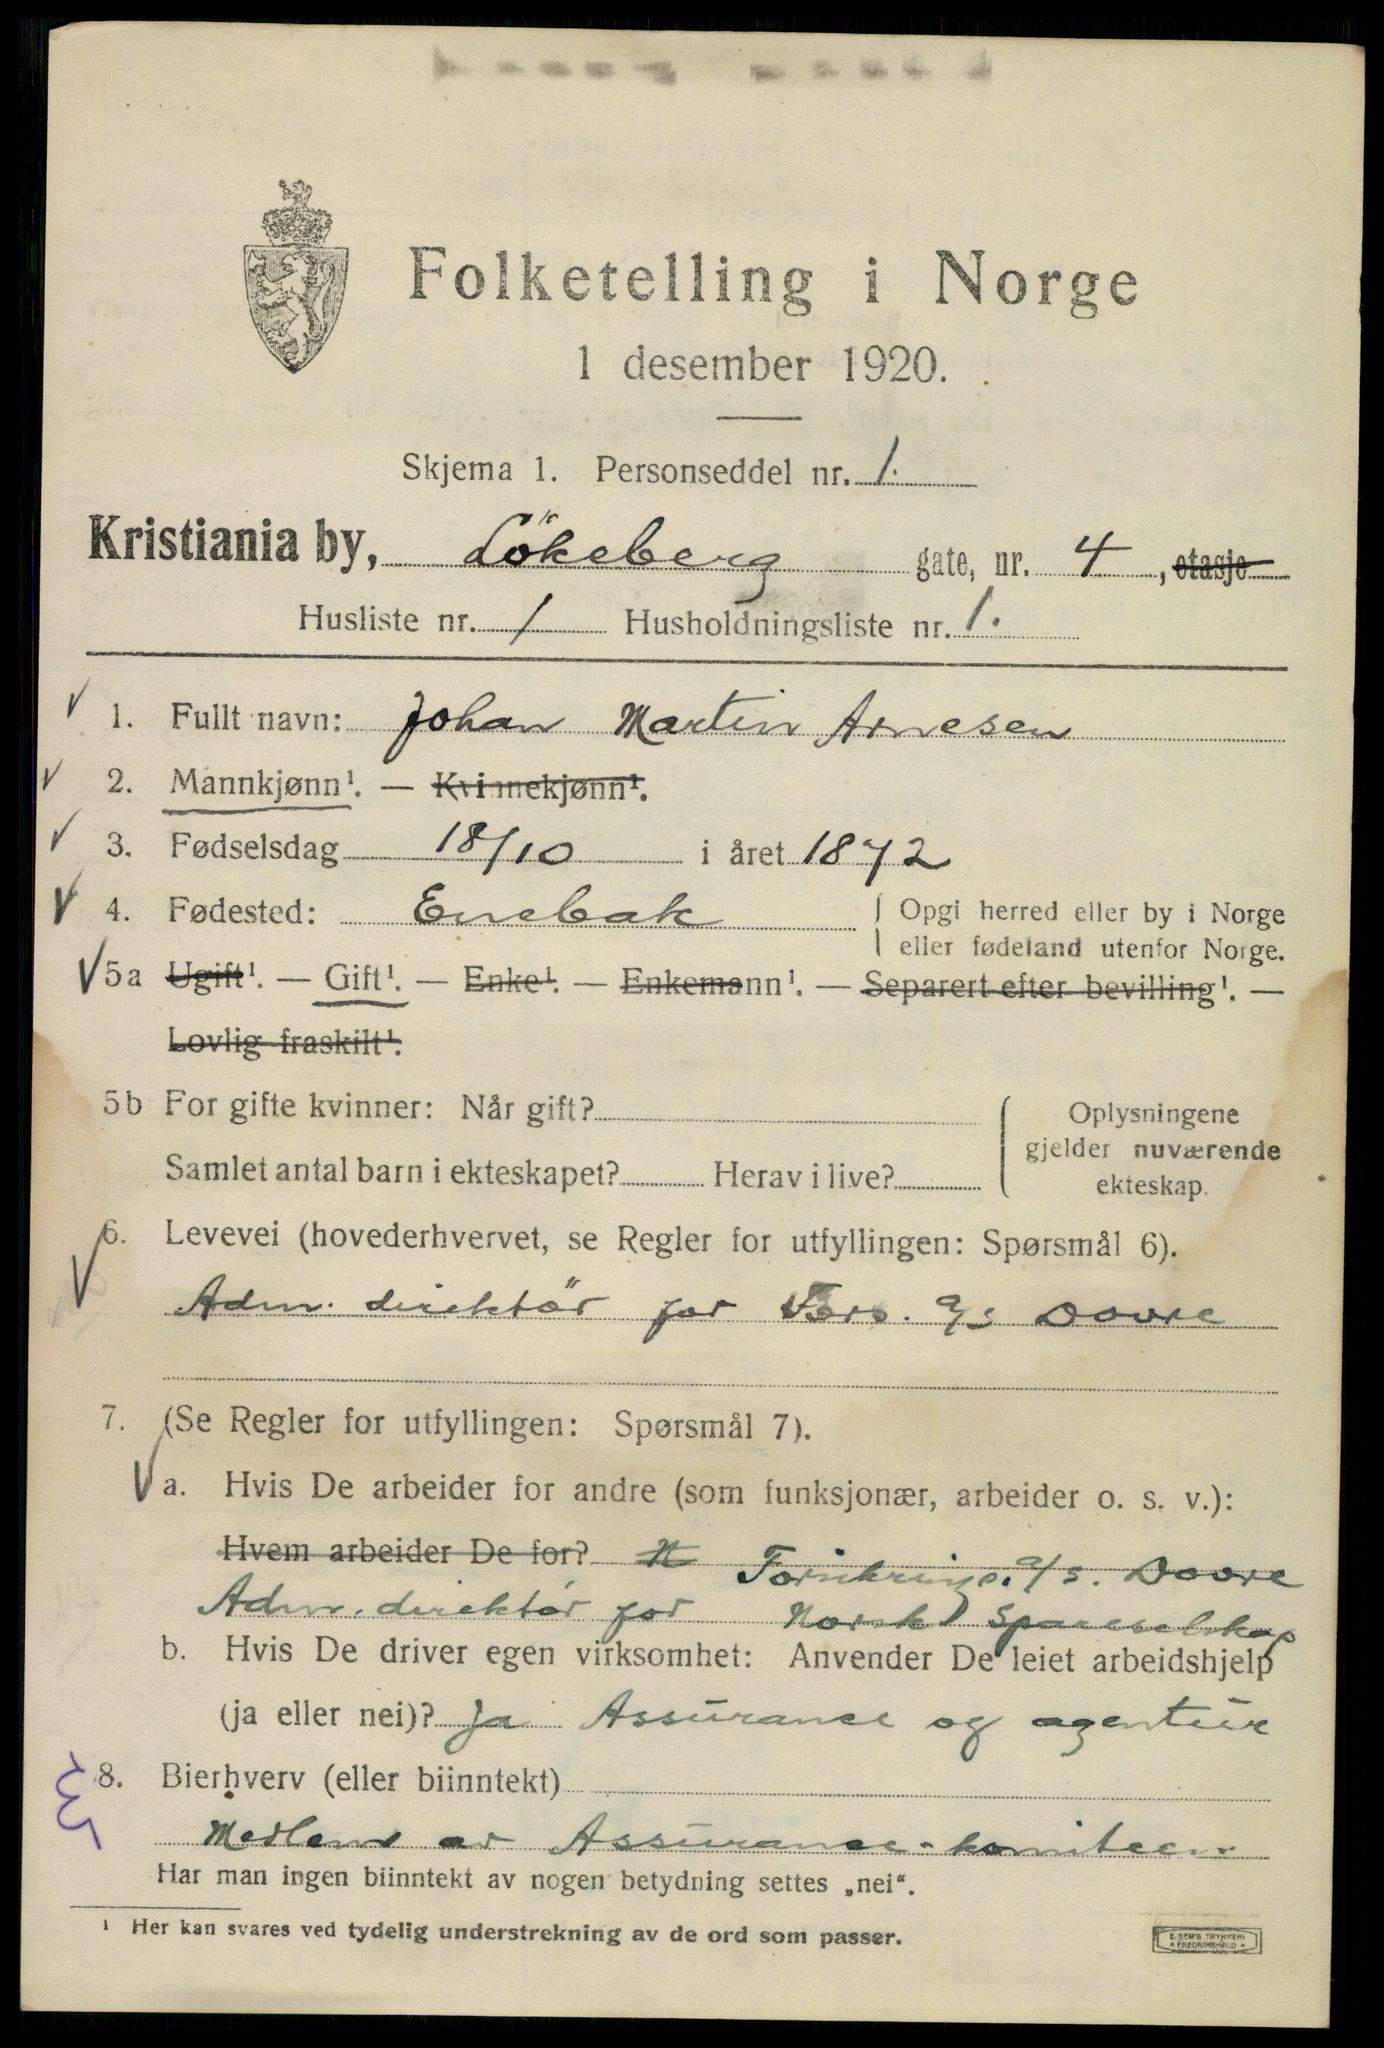 Folketelling i Norge
1 desember 1920.
Skjema 1. Personseddel nr. 1.
Kristiania by, Lökeberg gate, nr. 4, etasje
Husliste nr. 1 Husholdningsliste nr. 1.
1. Fullt navn: Johan Martin Arnesen
2. Mannkjønn¹. — Kvinnekjønn¹.
3. Fødselsdag 18/10 i året 1872
4. Fødested: Enebak Opgi herred eller by i Norge
eller fødeland utenfor Norge.
5a Ugift¹. — Gift¹. — Enke¹. — Enkemann¹. — Separert efter bevilling¹. —
Lovlig fraskilt¹.
5b For gifte kvinner: Når gift? Oplysningene
gjelder nuværende
Samlet antal barn i ekteskapet? Herav i live? ekteskap.
6. Levevei (hovederhvervet, se Regler for utfyllingen: Spørsmål 6).
Adm. direktör for Fors. a/s Dovre
7. (Se Regler for utfyllingen: Spørsmål 7).
a. Hvis De arbeider for andre (som funksjonær, arbeider o. s. v.):
Hvem arbeider De for? Forsikrings. a/s. Dovre
Adm. direktör for Norsk Spareselskap
b. Hvis De driver egen virksomhet: Anvender De leiet arbeidshjelp
(ja eller nei)? Ja Assurance og agentur
8. Bierhverv (eller biinntekt)
Medlem av Assurance-komiteen
Har man ingen biinntekt av nogen betydning settes „nei“.
¹ Her kan svares ved tydelig understrekning av de ord som passer.
E. SEM'S TRYKKERI
FREDRIKSHALD